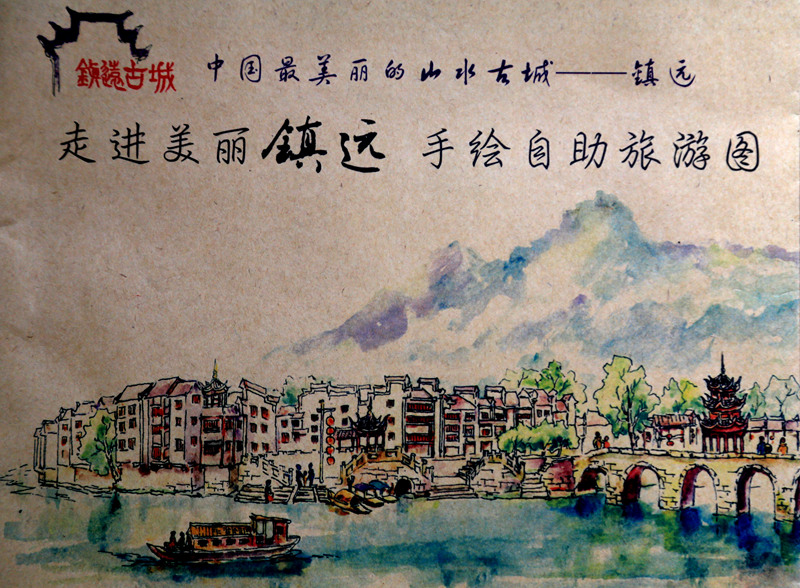 鎮遠古城
中国最美丽的山水古城——鎮远
走进美丽鎮远 手绘自助旅游图